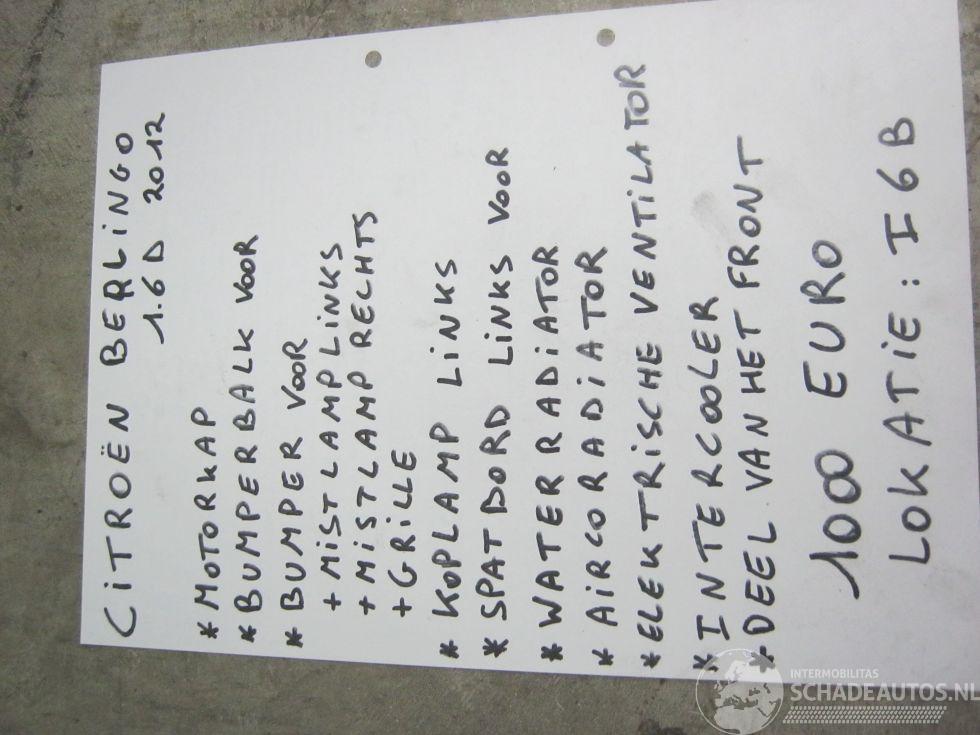 CiTROËN BERLINGO
1.6D 2012
* MOTORKAP
* BUMPERBALK VOOR
* BUMPER VOOR
+ MiSTLAMP LINKS
+ MiSTLAMP RECHTS
+ GRiLLE
* KOPLAMP LiNKS
* SPATBORD LiNKS VOOR
* WATERRADiATOR
* AiRCORADiATOR
* ELEKTRiSCHE VENTiLATOR
* INTERCOOLER
* DEEL VAN HET FRONT
1000 EURO
LOKATiE: I6B
INTERMOBILITAS
SCHADEAUTOS.NL